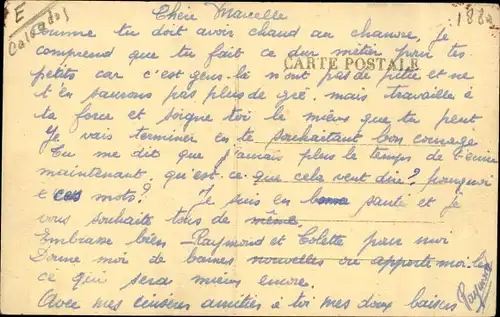 E
Calvados
188
CARTE POSTALE
Chère Marcelle
comme tu doit avoir chaud au chanvre, je
comprend que tu fait ce dur métier pour tes
petits car c'est gens là n'ont pas de pitié et ne
t'en saurons pas plus de gré. mais travaille à
ta force et soigne toi le mieux que tu peut
Je vais terminer en te souhaitant bon courage
Tu me dit que j'aurais plus le temps de t'écrire
maintenant, qu'est-ce que cela veut dire? pourquoi
ces mots? Je suis en bonne santé et je
vous souhaite tous de même.
Embrasse bien Raymond et Colette pour moi
Donne moi de bonnes nouvelles ou apporte moi les
ce qui sera mieux encore.
Avec mes sincères amitiés à toi mes doux baisers